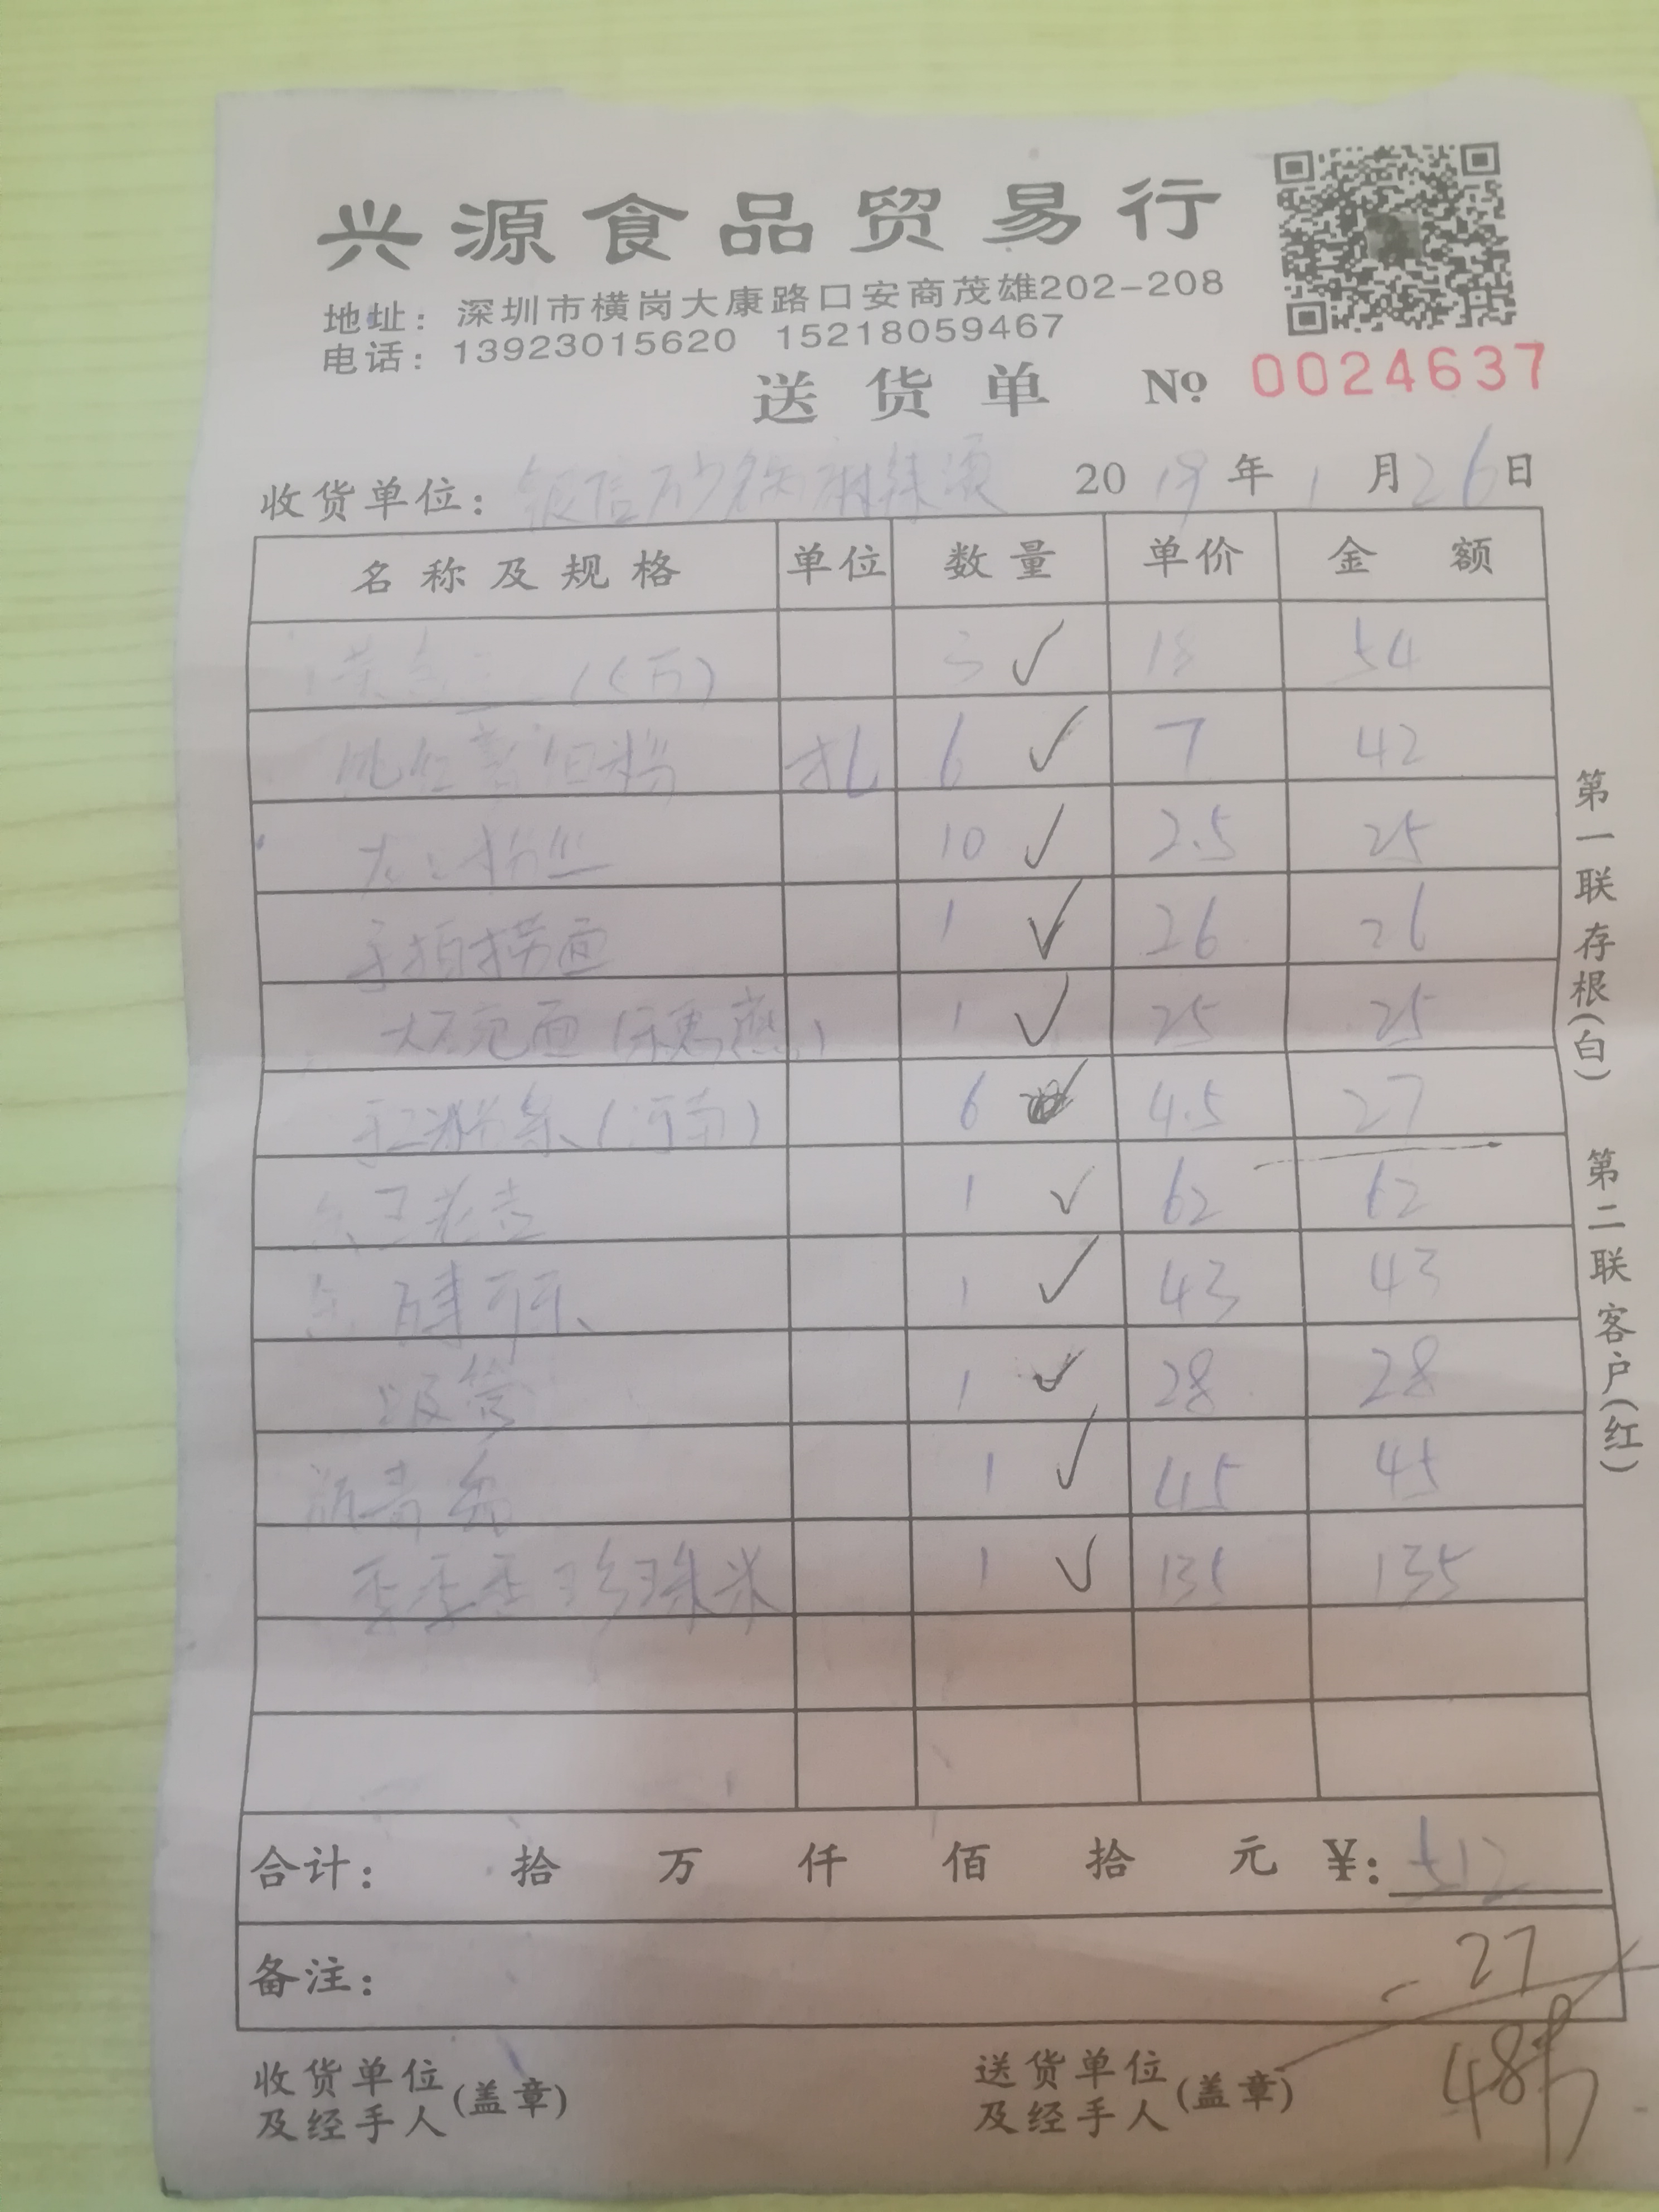 兴源食品贸易行
地址：深圳市横岗大康路口安商茂雄202-208
电话：13923015620 15218059467
送货单 № 0024637
收货单位： 2019年1月26日
名称及规格 单位 数量 单价 金额
3 18 54
6 7 42
10 2.5 25
手拍捞面 1 26 26
大碗面 1 25 25
(河南) 6 4.5 27
王老吉 1 62 62
百事可乐 1 43 43
吸管 1 28 28
1 45 45
季季香珍珠米 1 135 135
合计： 拾 万 仟 佰 拾 元 ¥：512
备注： -27
485
收货单位及经手人(盖章)
送货单位及经手人(盖章)
第一联存根(白) 第二联客户(红)